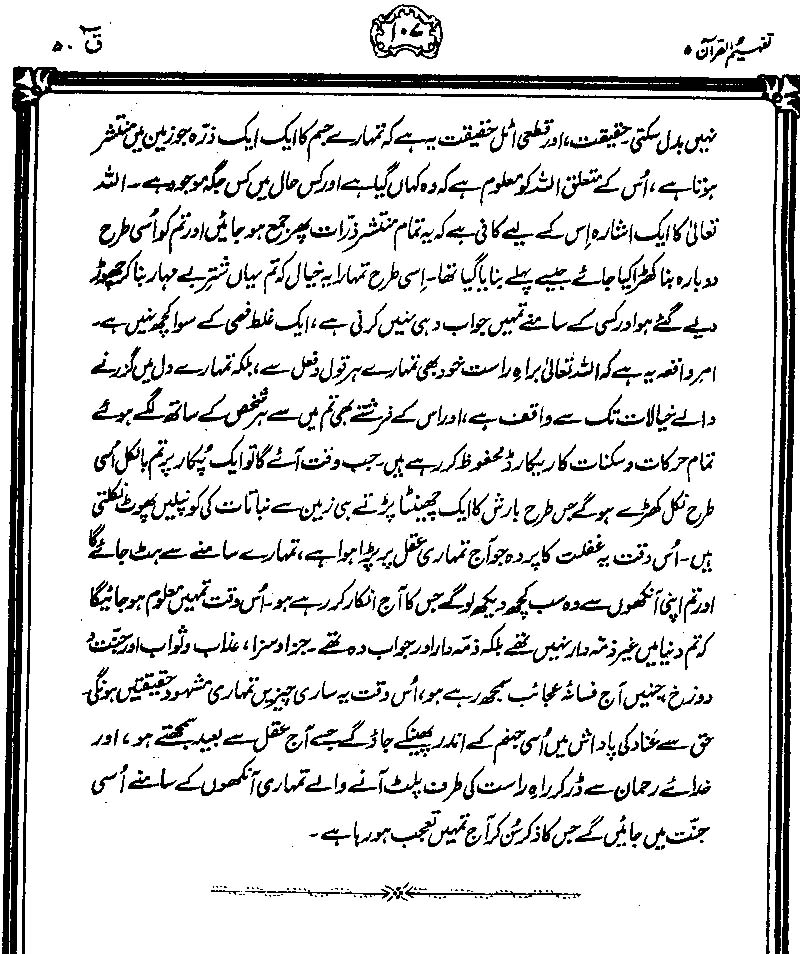 تفہیم القرآن ۵
۱۰۷
قٓ ۵۰
نہیں بدل سکتی۔ حقیقت، اور قطعی اٹل حقیقت یہ ہے کہ تمہارے جسم کا ایک ایک ذرّہ جو زمین میں منتشر
ہوتا ہے، اُس کے متعلق اللہ کو معلوم ہے کہ وہ کہاں گیا ہے اور کس حال میں کس جگہ موجود ہے۔ اللہ
تعالیٰ کا ایک اشارہ اِس کے لیے کافی ہے کہ یہ تمام منتشر ذرّات پھر جمع ہو جائیں اور تم کو اُسی طرح
دوبارہ بنا کھڑا کیا جائے جیسے پہلے بنایا گیا تھا۔ اِسی طرح تمہارا یہ خیال کہ تم یہاں شترِ بے مہار بنا کر چھوڑ
دیے گئے ہو اور کسی کے سامنے تمہیں جواب دہی نہیں کرنی ہے، ایک غلط فہمی کے سوا کچھ نہیں ہے۔
امر واقعہ یہ ہے کہ اللہ تعالیٰ براہِ راست خود بھی تمہارے ہر قول و فعل سے، بلکہ تمہارے دل میں گزرنے
والے خیالات تک سے واقف ہے، اور اس کے فرشتے بھی تم میں سے ہر شخص کے ساتھ لگے ہوئے
تمام حرکات و سکنات کا ریکارڈ محفوظ کر رہے ہیں۔ جب وقت آئے گا تو ایک پُکار پر تم بالکل اُسی
طرح نکل کھڑے ہو گے جس طرح بارش کا ایک چھینٹا پڑتے ہی زمین سے نباتات کی کونپلیں پھوٹ نکلتی
ہیں۔ اُس وقت یہ غفلت کا پردہ جو آج تمہاری عقل پر پڑا ہوا ہے، تمہارے سامنے سے ہٹ جائے گا
اور تم اپنی آنکھوں سے وہ سب کچھ دیکھ لو گے جس کا آج انکار کر رہے ہو۔ اُس وقت تمہیں معلوم ہو جائیگا
کہ تم دنیا میں غیر ذمّہ دار نہیں تھے بلکہ ذمّہ دار اور جواب دہ تھے۔ جزا و سزا، عذاب و ثواب اور جنّت و
دوزخ، جنہیں آج فسانۂ عجائب سمجھ رہے ہو، اُس وقت یہ ساری چیزیں تمہاری مشہود حقیقتیں ہونگی۔
حق سے عناد کی پاداش میں اُسی جہنم کے اندر پھینکے جاؤ گے جسے آج عقل سے بعید سمجھتے ہو، اور
خدائے رحمان سے ڈر کر راہِ راست کی طرف پلٹ آنے والے تمہاری آنکھوں کے سامنے اُسی
جنّت میں جائیں گے جس کا ذکر سُن کر آج تمہیں تعجب ہو رہا ہے۔